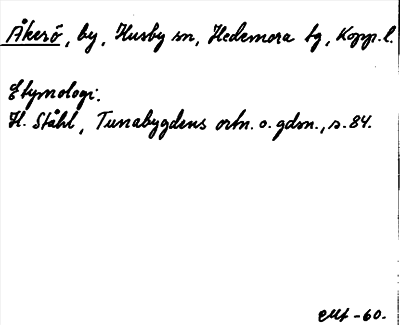 Åkerö, by, Husby sn, Hedemora tg, Kopp. l.
Etymologi.
H. Ståhl, Tunabygdens ortn. o. gdsn., s. 84.
-60.